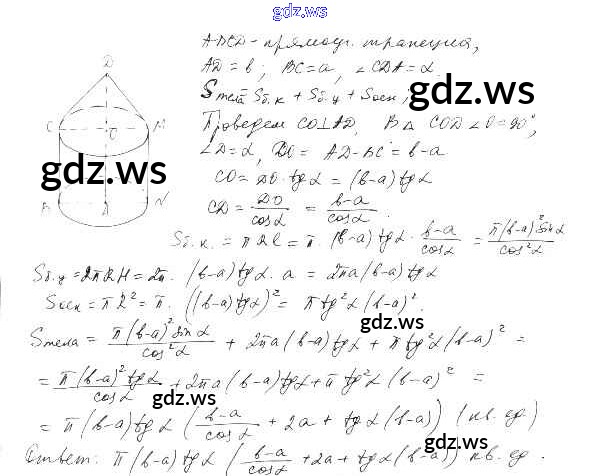 gdz.ws
ABCD - прямоуг. трапеция,
AD = b; BC = a, ∠CDA = α.
Sтела = Sб.к + Sб.ц + Sосн;
gdz.ws
Проведем CO⊥AD, В △ COD ∠O = 90°,
∠D = α, DO = AD - BC = b-a
CO = DO · tg α = (b-a) tg α
CD = DO/cos α = (b-a)/cos α.
D
C O M
gdz.ws
B A N
Sб.к. = πRl = π · (b-a) tg α · (b-a)/cos α = π(b-a)² sin α/cos² α
Sб.ц = 2πRH = 2π · (b-a) tg α · a = 2πa(b-a) tg α
Sосн = πR² = π · ((b-a) tg α)² = π tg² α (b-a)².
gdz.ws
Sтела = π(b-a)² sin α/cos² α + 2πa(b-a) tg α + π tg² α (b-a)² =
= π(b-a)² tg α/cos α + 2πa(b-a) tg α + π tg² α (b-a)² =
gdz.ws
= π(b-a) tg α ((b-a)/cos α + 2a + tg α (b-a)) (кв. ед.)
gdz.ws
Ответ: π(b-a) tg α ((b-a)/cos α + 2a + tg α (b-a)) кв. ед.